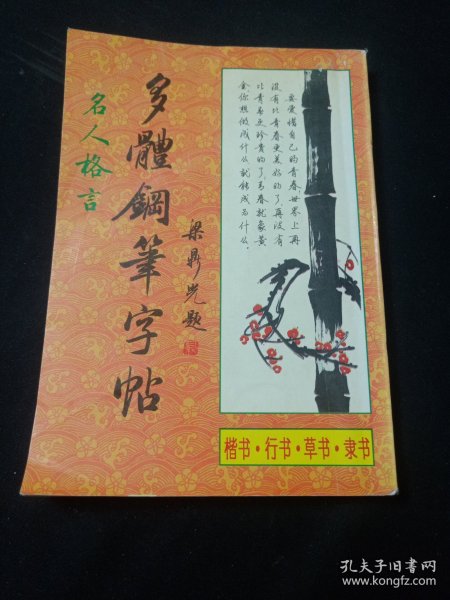 名人格言
多體鋼筆字帖
梁鼎光题
要爱惜自己的青春世界上再
没有比青春更美好的了再没有
比青春更珍贵的了青春就象黄
金你想做成什么就能成为什么.
楷书·行书·草书·隶书
孔夫子旧书网
www.kongfz.com